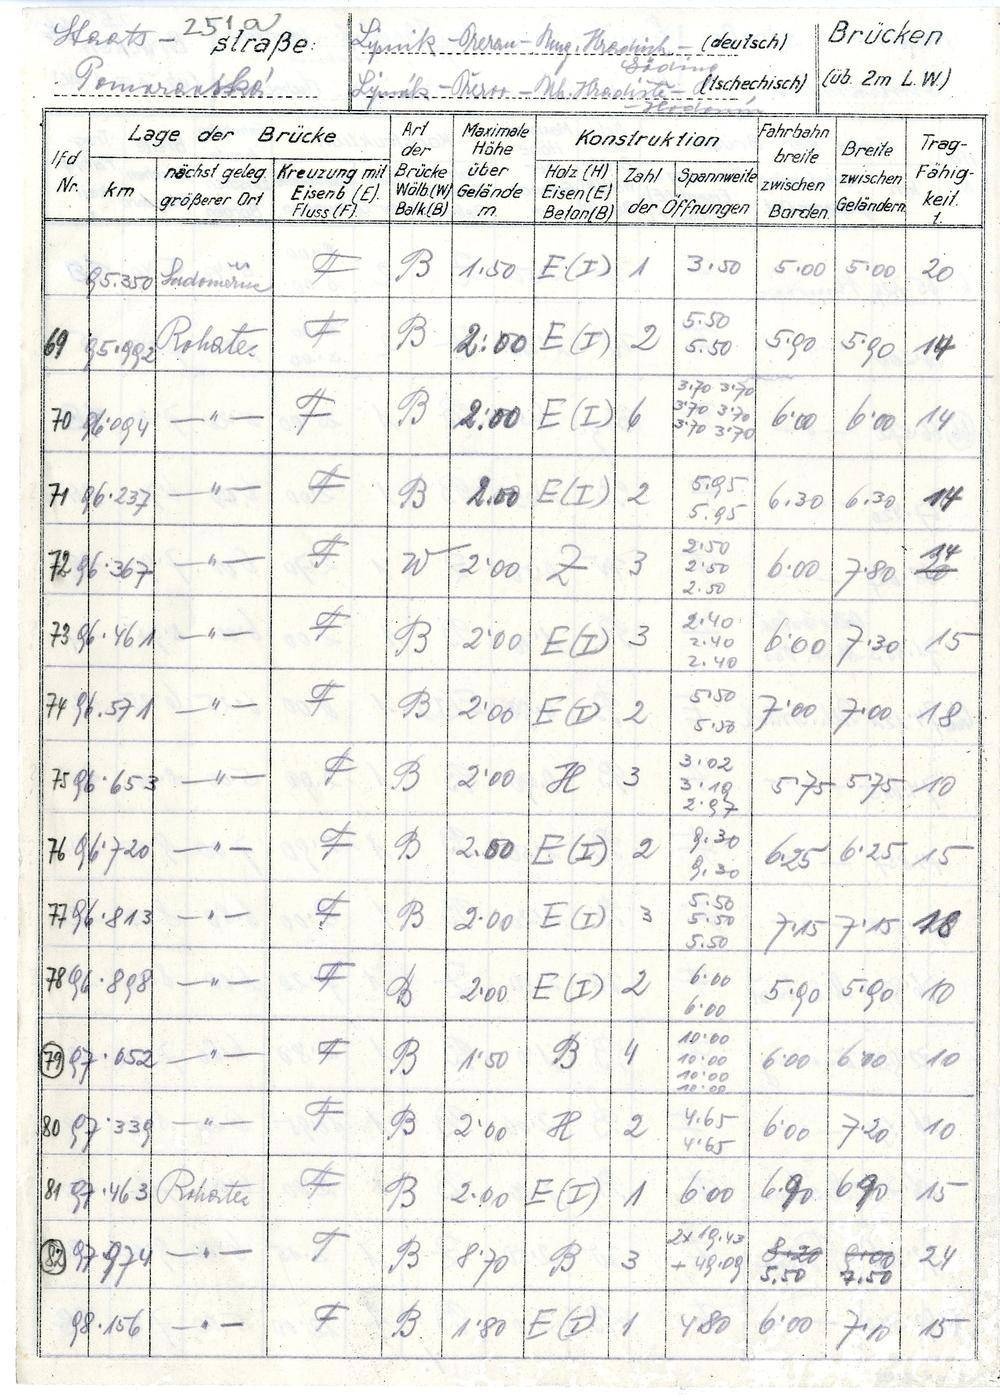 Staats- 251a straße:
Lipnik - Prerau - Ung. Hradisch - (deutsch)
Göding
Brücken
Pomoravská
Lipník - Přerov - Uh. Hradiště - (tschechisch)
- Hodonín
(üb. 2m L.W.)
lfd Nr. Lage der Brücke Art der Brücke Wölb(W) Balk(B) Maximale Höhe über Gelände m. Konstruktion Fahrbahn breite zwischen Borden Breite zwischen Geländern Trag-Fähig-keit. t.
km nächst geleg. größerer Ort Kreuzung mit Eisenb (E). Fluss (F). Holz (H) Eisen (E) Beton (B) Zahl Spannweite der Öffnungen
95.350 F B 1.50 E(I) 1 3.50 5.00 5.00 20
69 95.992 Rohatec F B 2.00 E(I) 2 5.50 5.50 5.90 5.90 14
70 96.094 — " — F B 2.00 E(I) 6 3.70 3.70 3.70 3.70 3.70 3.70 6.00 6.00 14
71 96.237 — " — F B 2.00 E(I) 2 5.95 5.95 6.30 6.30 14
72 96.367 — " — F W 2.00 Z 3 2.50 2.50 2.50 6.00 7.80 14 20
73 96.461 — " — F B 2.00 E(I) 3 2.40 2.40 2.40 6.00 7.30 15
74 96.571 — " — F B 2.00 E(I) 2 5.50 5.50 7.00 7.00 18
75 96.653 — " — F B 2.00 H 3 3.02 3.19 2.97 5.75 5.75 10
76 96.720 — " — F B 2.00 E(I) 2 9.30 9.30 6.25 6.25 15
77 96.813 — " — F B 2.00 E(I) 3 5.50 5.50 5.50 7.15 7.15 18
78 96.898 — " — F B 2.00 E(I) 2 6.00 6.00 5.90 5.90 10
79 97.052 — " — F B 1.50 B 4 10.00 10.00 10.00 10.00 6.00 6.00 10
80 97.339 — " — F B 2.00 H 2 4.65 4.65 6.00 7.20 10
81 97.463 Rohatec F B 2.00 E(I) 1 6.00 6.90 6.90 15
82 97.974 — " — F B 8.70 B 3 2x19.43 + 49.09 8.20 5.50 9.00 7.50 24
98.156 — " — F B 1.80 E(I) 1 4.80 6.00 7.10 15